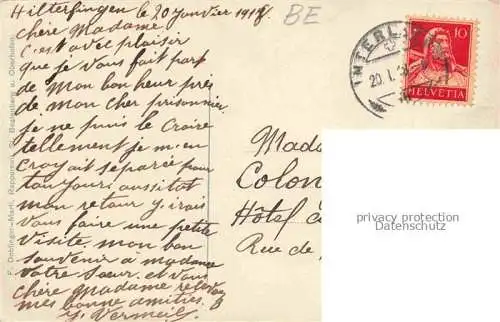 Hilterfingen le 20 Janvier 1918
BE
chère Madame
c'est avec plaisir
que je vous fait part
de mon bonheur près
de mon cher prisonnier
je ne puis le croire
tellement je m'en
croyait séparée pour
toujours, aussitot
mon retour j'irais
vous faire une petite
visite. mon bon
souvenir à madame
votre sœur et vous
chère Madame
mes bonne amitiés.
Y. Vermeil
INTERL
20. I. 1
10
HELVETIA
Madame
Colon
Hôtel
Rue de
privacy protection
Datenschutz